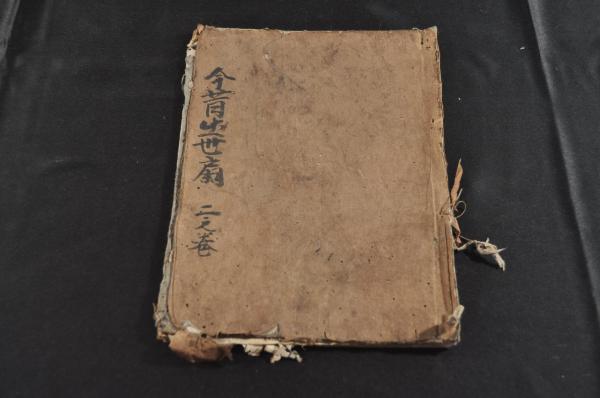 今昔出世扇 二之巻